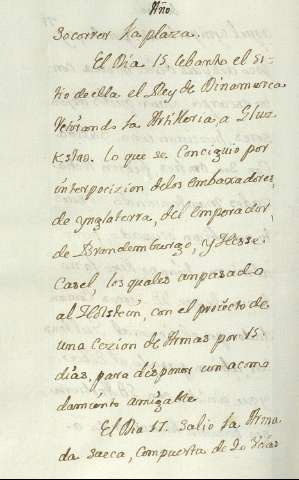 Año
Socorrer la plaza.
El Dia 15, lebanto el si-
tio de ella el Rey de Dinamarca
retirando la Artilleria a Gluz
Kstad. lo que se Conciguio por
interpocizion delos embaxadores,
de ynglaterra, del emperador,
de Brandemburgo, y Hesse
Casel, los quales anpasado
al Holsteín, con el proiècto de
una Cezion de Armas por 15
días, para disponer un acomo
damiento amigable
El Dia 17. Salio la Arma
da Sueca, Compuesta de 20 Velas